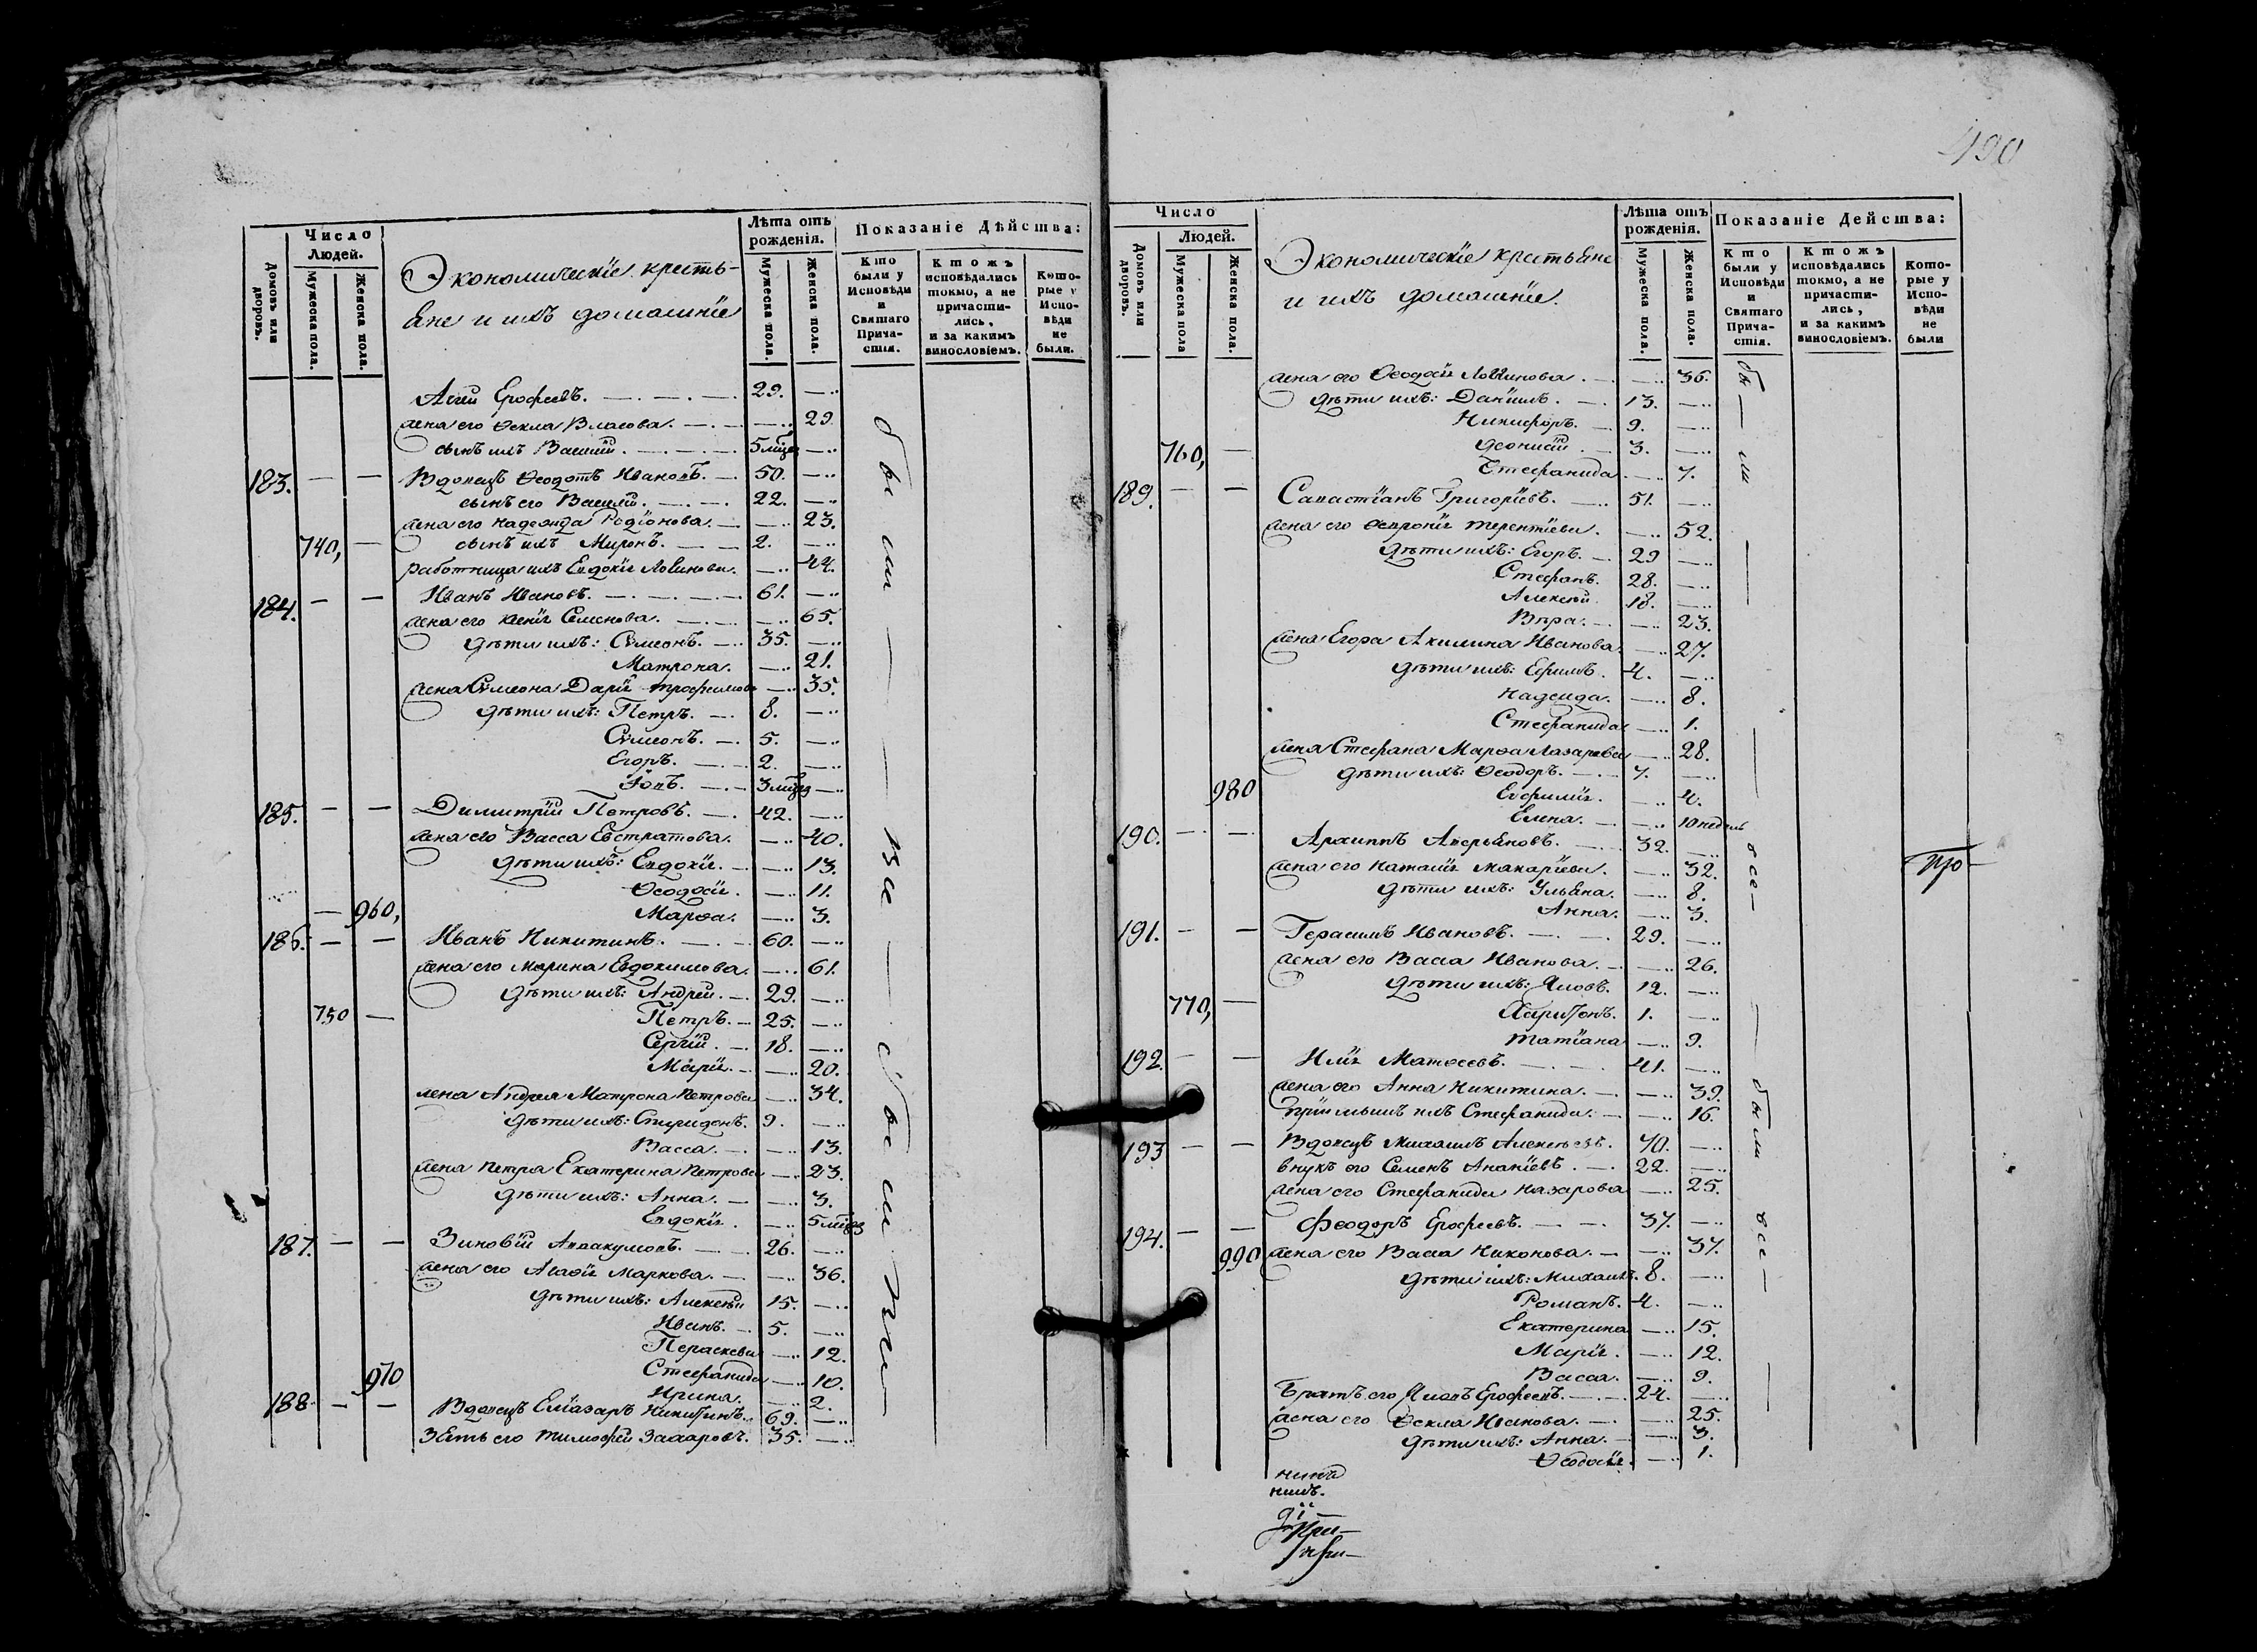 Число
Людей.
Домовъ или дворовъ.
Мужеска пола.
Женска пола.
Экономическіе кресть-
яне и ихъ домашніе
Лѣта отъ рожденія.
Мужеска пола.
Женска пола.
Показаніе Дѣйства:
Кто были у Исповѣди и Святаго Причастія.
Ктожъ исповѣдались токмо, а не причастились, и за какимъ винословіемъ.
Которые у Исповѣди не были.
Агей Ерофеевъ. 29.
жена его Ѳекла Власова. 29.
сынъ ихъ Василій. 5 мцов
183. Вдовецъ Ѳеодотъ Ивановъ. 50.
сынъ его Василій. 22.
жена его Надежда Родіонова. 23.
740, сынъ ихъ Миронъ. 2.
работница ихъ Евдокія Логинова. 44.
184. Иванъ Ивановъ. 61.
жена его Ксенія Семенова. 65.
дѣти ихъ: Сѵмеонъ. 35.
Матрона. 21.
жена Сѵмеона Дарія Трофимова 35.
дѣти ихъ: Петръ. 8.
Сѵмеонъ. 5.
Егоръ. 2.
Іовъ. 3 мцов
185. Димитрій Петровъ. 42.
жена его Васса Евстратова. 40.
дѣти ихъ: Евдокія. 13.
Ѳеодосія. 11.
960, Марѳа. 3.
186. Иванъ Никитинъ. 60.
жена его Марина Евдокимова. 61.
дѣти ихъ: Андрей. 29.
750 Петръ. 25.
Сергій. 18.
Марія. 20.
жена Андрея Матрона Петрова 34.
дѣти ихъ: Спиридонъ. 9.
Васса. 13.
жена Петра Екатерина Петрова 23.
дѣти ихъ: Анна. 3.
Евдокія. 5 мцов
187. Зиновій Аввакумовъ. 26.
жена его Агаѳія Маркова. 36.
дѣти ихъ: Алексѣй 15.
Иванъ. 5.
Параскева 12.
Стефанида 10.
970 Ирина. 2.
188. Вдовецъ Еліазаръ Никитинъ. 69.
Зять его Тимофей Захаровъ. 35.
490
Число
Людей.
Домовъ или дворовъ.
Мужеска пола
Женска пола.
Экономическіе крестьяне
и ихъ домашніе.
Лѣта отъ рожденія.
Мужеска пола.
Женска пола.
Показаніе Действа:
Кто были у Исповѣди и Святаго Причастія.
Ктожъ исповѣдались токмо, а не причастились, и за какимъ винословіемъ.
Которые у Исповѣди не были
жена его Ѳеодосія Логинова. 36.
дѣти ихъ: Даніилъ. 13.
Никифоръ. 9.
760, Діонисій 3.
Стефанида 7.
189. Савастіанъ Григоріевъ. 51.
жена его Ѳевронія Терентіева. 52.
дѣти ихъ: Егоръ. 29
Стефанъ. 28.
Алексѣй. 18.
Вѣра. 23.
жена Егора Акилина Иванова. 27.
дѣти ихъ: Ефимъ. 4.
Надежда. 8.
Стефанида 1.
жена Стефана Марѳа Лазарева 28.
дѣти ихъ: Ѳеодоръ. 7.
980 Евфимія. 4.
Елена. 10 недель
190. Архиппъ Аверьяновъ. 32.
жена его Наталія Макаріева. 32.
дѣти ихъ: Ульяна. 8.
Анна. 3.
191. Герасимъ Ивановъ. 29.
жена его Васса Иванова. 26.
дѣти ихъ: Яковъ. 12.
770, Харитонъ. 1.
Татіана 9.
192. Илія Матѳеевъ. 41.
жена его Анна Никитина. 39.
пріимышъ ихъ Стефанида. 16.
193 Вдовецъ Михаилъ Алексѣевъ. 70.
внукъ его Семенъ Ананіевъ. 22.
жена его Стефанида Назарова 25.
194. Феодоръ Ерофеевъ. 37.
990 жена его Васса Никонова. 37.
дѣти ихъ: Михаилъ. 8.
Романъ. 4.
Екатерина 15.
Марія. 12.
Васса. 9.
Братъ его Яковъ Ерофеевъ. 24.
жена его Ѳекла Иванова. 25.
дѣти ихъ: Анна. 3.
Ѳеодосія. 1.